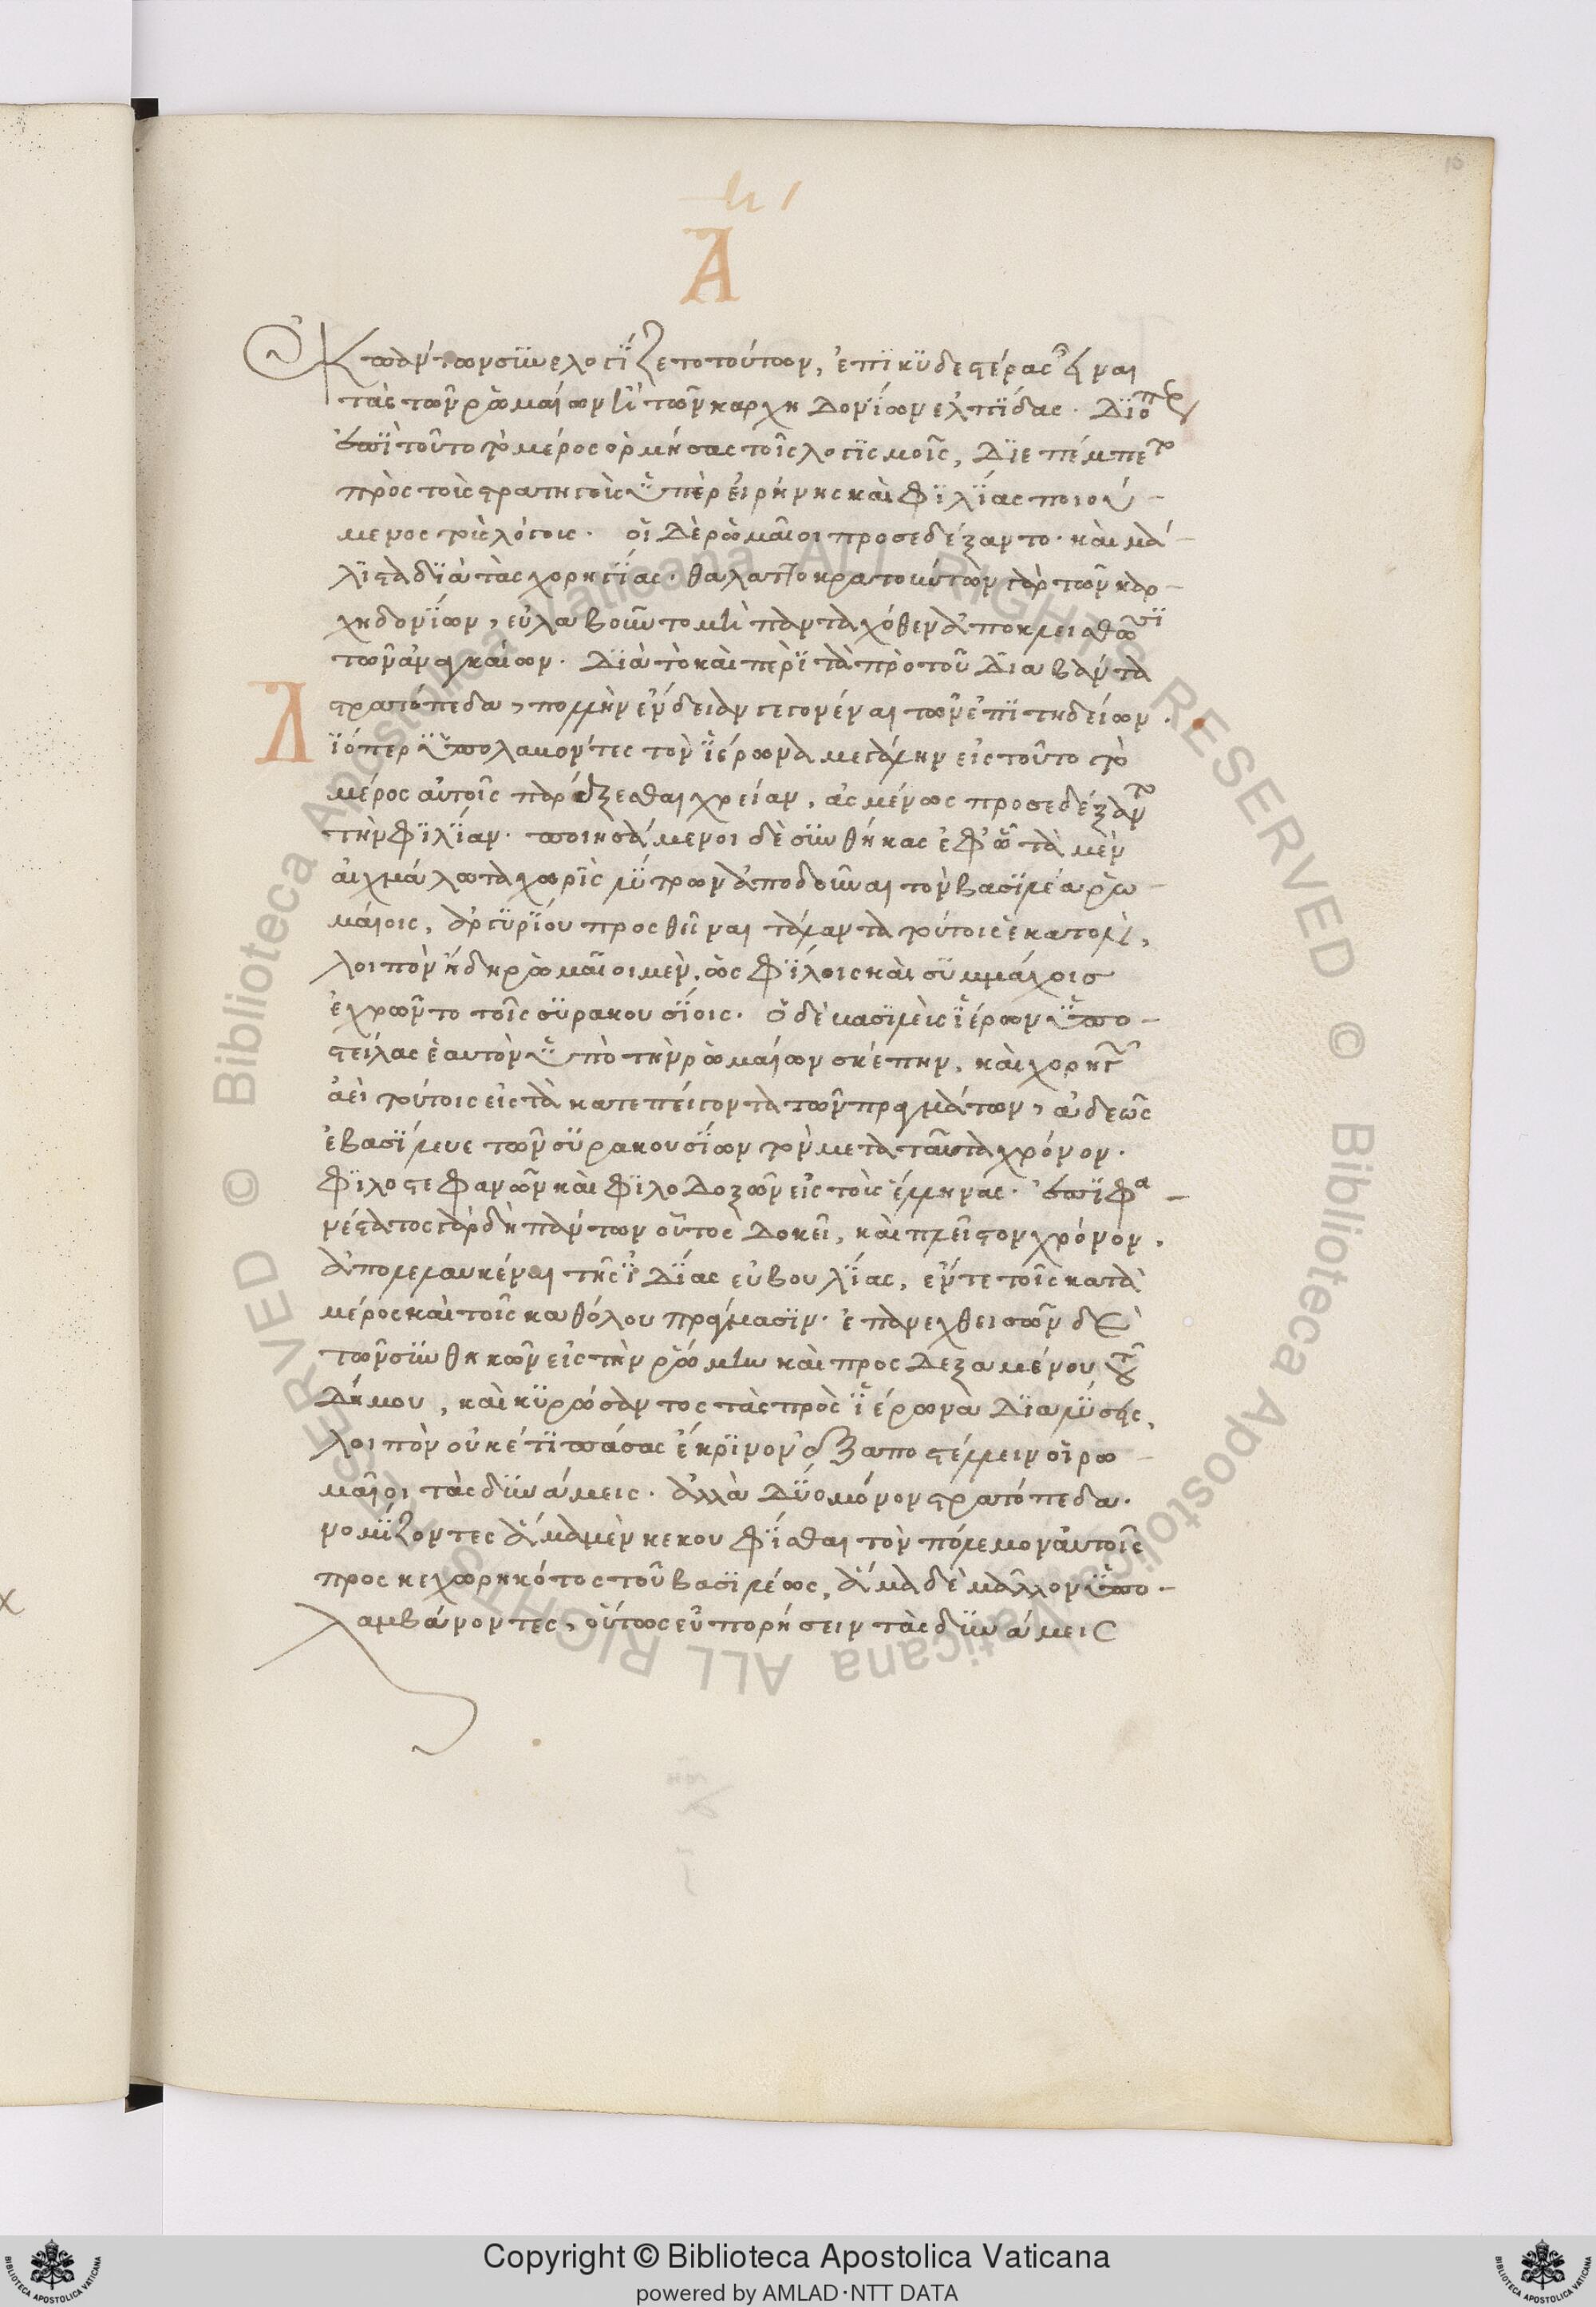 Α
ἐκ πάντων συνελογίζετο τούτων, ἐπικυδεστέρας εἶναι
τὰς τῶν ῥωμαίων ἢ τῶν καρχηδονίων ἐλπίδας. διόπερ
ἐπὶ τοῦτο τὸ μέρος ὁρμήσας τοῖς λογισμοῖς, διεπέμπετο
πρὸς τοὺς στρατηγοὺς ὑπὲρ εἰρήνης καὶ φιλίας ποιού-
μενος τοὺς λόγους. οἱ δὲ ῥωμαῖοι προσεδέξαντο. καὶ μά-
λιστα διὰ τὰς χορηγίας. θαλαττοκρατούντων γὰρ τῶν καρ-
χηδονίων, εὐλαβοῦντο μὴ πανταχόθεν ἀποκλεισθῶσι
τῶν ἀναγκαίων. διὰ τὸ καὶ περὶ τὰ πρὸ τοῦ διαβάντα
στρατόπεδα, πολλὴν ἔνδειαν γεγονέναι τῶν ἐπιτηδείων.
Διόπερ ὑπολαβόντες τὸν ἱέρωνα μεγάλην εἰς τοῦτο τὸ
μέρος αὐτοῖς παρέξεσθαι χρείαν, ἀσμένως προσεδέξαντο
τὴν φιλίαν. ποιησάμενοι δὲ συνθήκας ἐφ' ᾧ τὰ μὲν
αἰχμάλωτα χωρὶς λύτρων ἀποδοῦναι τὸν βασιλέα ῥω-
μαίοις, ἀργυρίου προσθεῖναι τάλαντα τούτοις ἑκατὸν,
λοιπὸν ἤδη ῥωμαῖοι μὲν, ὡς φίλοις καὶ συμμάχοις
ἐχρῶντο τοῖς συρακουσίοις. ὁ δὲ βασιλεὺς ἱέρων ὑπο-
στείλας ἑαυτὸν ὑπὸ τὴν ῥωμαίων σκέπην, καὶ χορηγῶν
ἀεὶ τούτοις εἰς τὰ κατεπείγοντα τῶν πραγμάτων, ἀδεῶς
ἐβασίλευε τῶν συρακουσίων τὸν μετὰ ταῦτα χρόνον.
φιλοστεφανῶν καὶ φιλοδοξῶν εἰς τοὺς ἕλληνας. ἐπιφα-
νέστατος γὰρ δὴ πάντων οὗτος δοκεῖ, καὶ πλεῖστον χρόνον,
ἀπολελαυκέναι τῆς ἰδίας εὐβουλίας, ἔν τε τοῖς κατὰ
μέρος καὶ τοῖς καθόλου πράγμασιν. ἐπανεχθεισῶν δὲ
τῶν συνθηκῶν εἰς τὴν ῥώμην καὶ προσδεξαμένου τοῦ
δήμου, καὶ κυρώσαντος τὰς πρὸς ἱέρωνα διαλύσεις,
λοιπὸν οὐκέτι πάσας ἔκρινον ἐξαποστέλλειν οἱ ῥω-
μαῖοι τὰς δυνάμεις. ἀλλὰ δύο μόνον στρατόπεδα.
νομίζοντες ἅμα μὲν κεκουφίσθαι τὸν πόλεμον αὐτοῖς
προσκεχωρηκότος τοῦ βασιλέως, ἅμα δὲ μᾶλλον ὑπο-
λαμβάνοντες, οὕτως εὐπορήσειν τὰς δυνάμεις
Copyright © Biblioteca Apostolica Vaticana
powered by AMLAD·NTT DATA